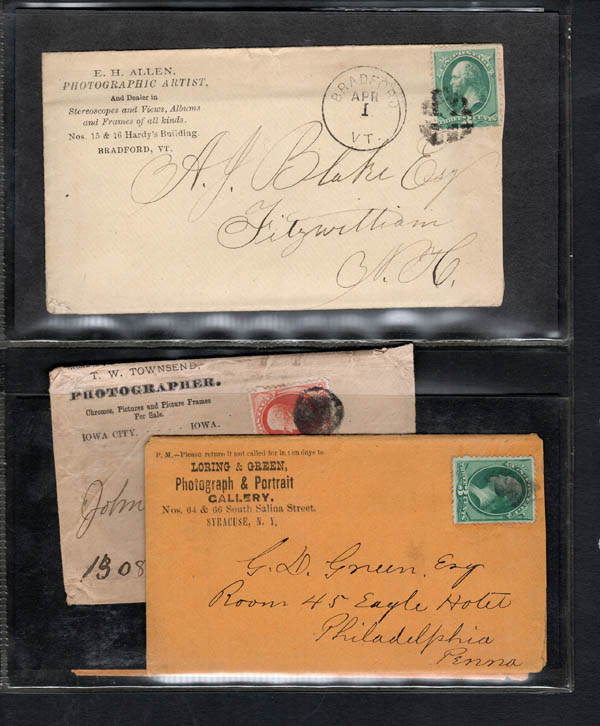 E. H. ALLEN,
PHOTOGRAPHIC ARTIST,
And Dealer in
Stereoscopes and Views, Albums
and Frames of all kinds.
Nos. 15 & 16 Hardy's Building.
BRADFORD, VT.
BRADFORD
APR
1
VT.
A. J. Blake Esq
Fitzwilliam
N. H.
T. W. TOWNSEND,
PHOTOGRAPHER.
Chromos, Pictures and Picture Frames
For Sale.
IOWA CITY, IOWA.
John
1308
P. M.—Please return if not called for in ten days to
LORING & GREEN,
Photograph & Portrait
GALLERY,
Nos. 64 & 66 South Salina Street.
SYRACUSE, N. Y.
G. D. Green, Esq
Room 45 Eagle Hotel
Philadelphia
Penna